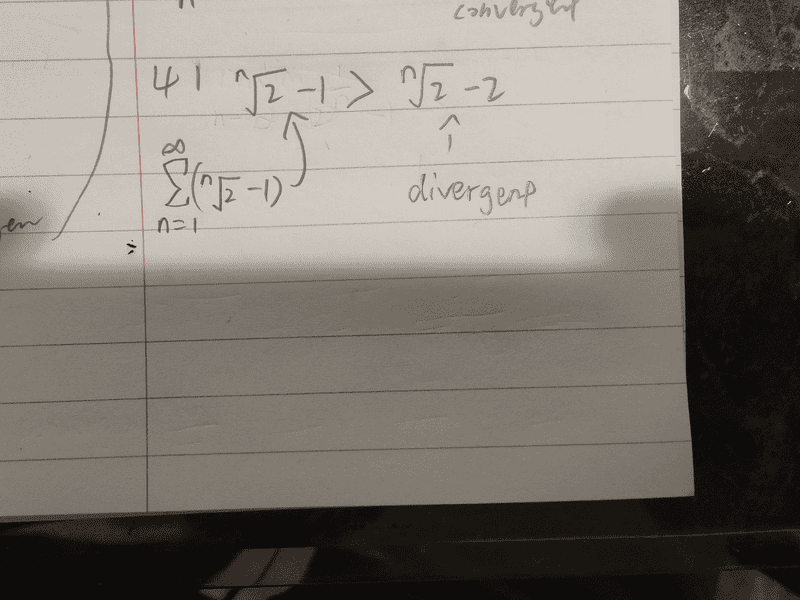 convergent
41 ⁿ√2 - 1 > ⁿ√2 - 2
∞
Σ(ⁿ√2 - 1)
n=1
divergent